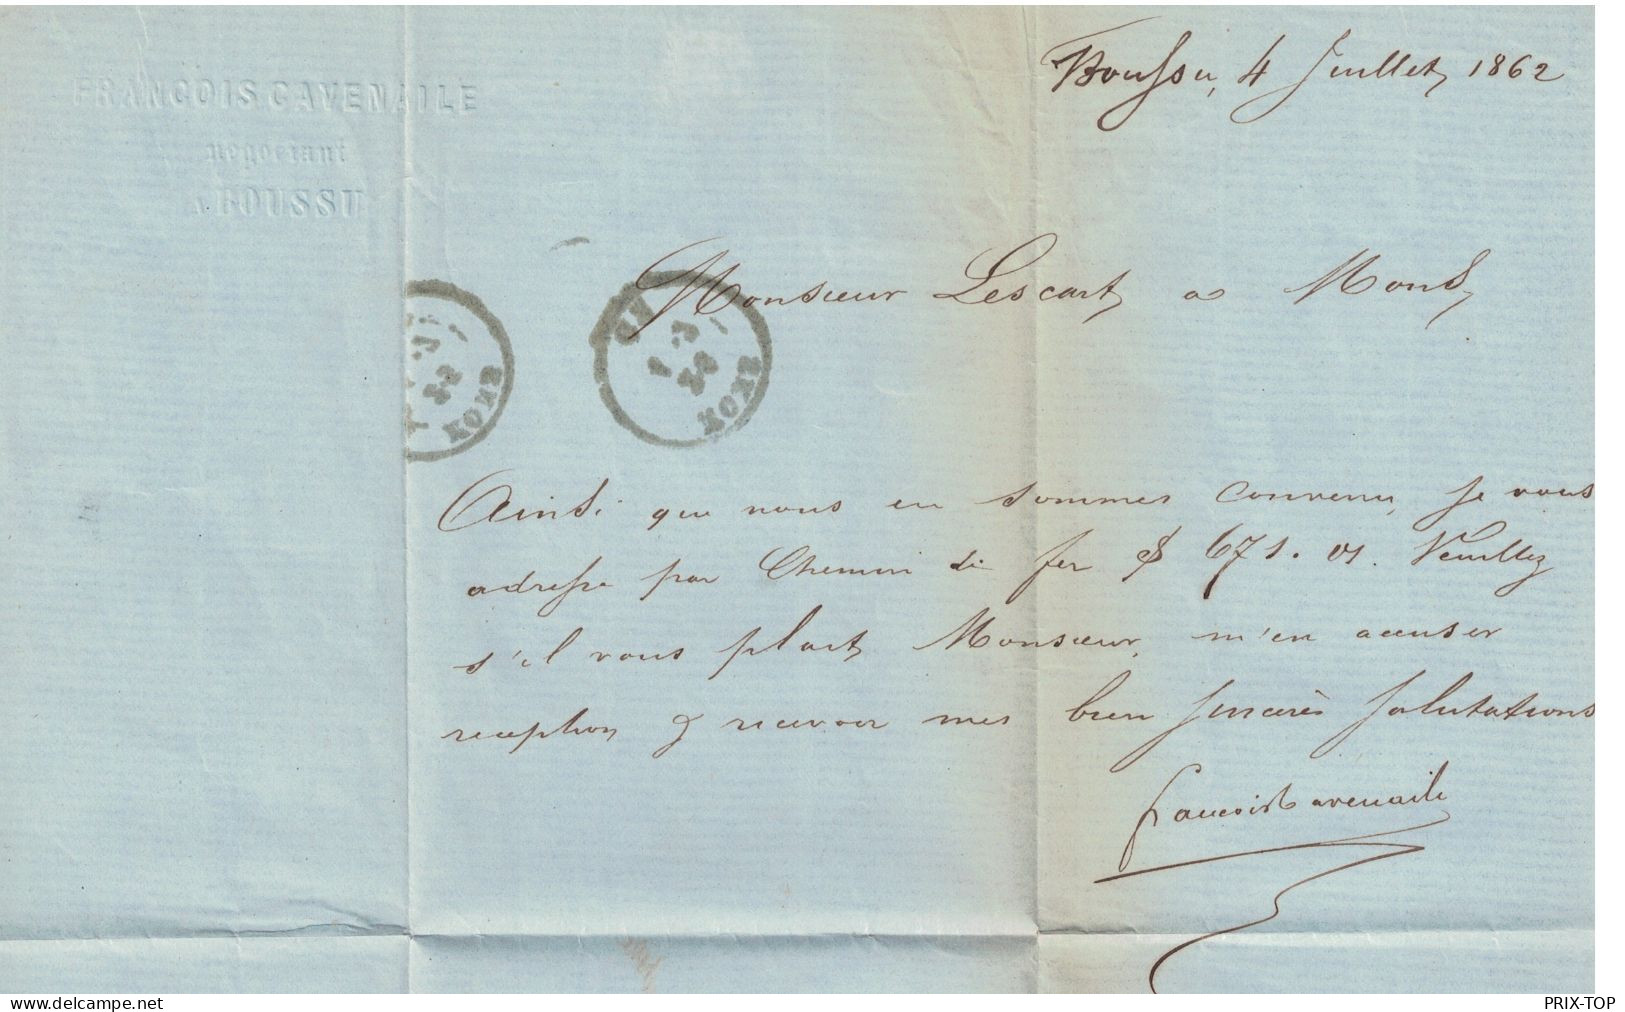 FRANCOIS CAVENAILE
négociant
A BOUSSU
Boussu, 4 Juillet 1862
Monsieur Lescart a Mons,
MONS
MONS
Ainsi que nous en sommes convenu, je vous
adresse par Chemin de fer 671.01. Veuillez
s'il vous plait Monsieur, m'en accuser
reception & recevoir mes bien sincères salutations
Francois Cavenaile
www.delcampe.net
PRIX-TOP